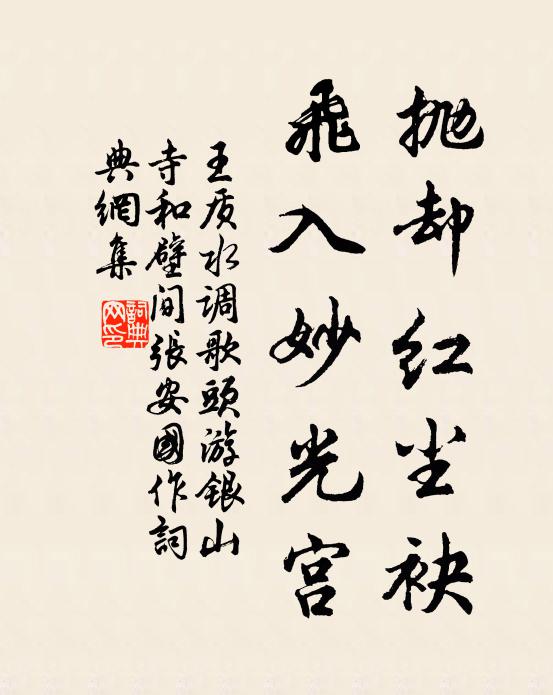 抛却红尘袂
飞入妙光宫
王质水调歌頭游银山
寺和壁间張安國作詞
典網集
詞典网印